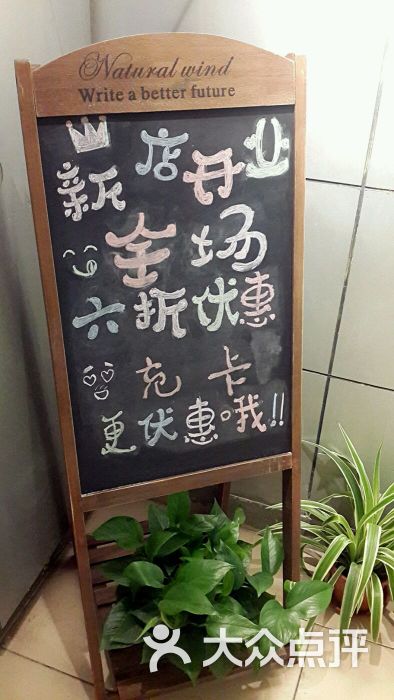 Natural wind
Write a better future
新店开业
全场
六折优惠
充卡
更优惠哦!!
大众点评